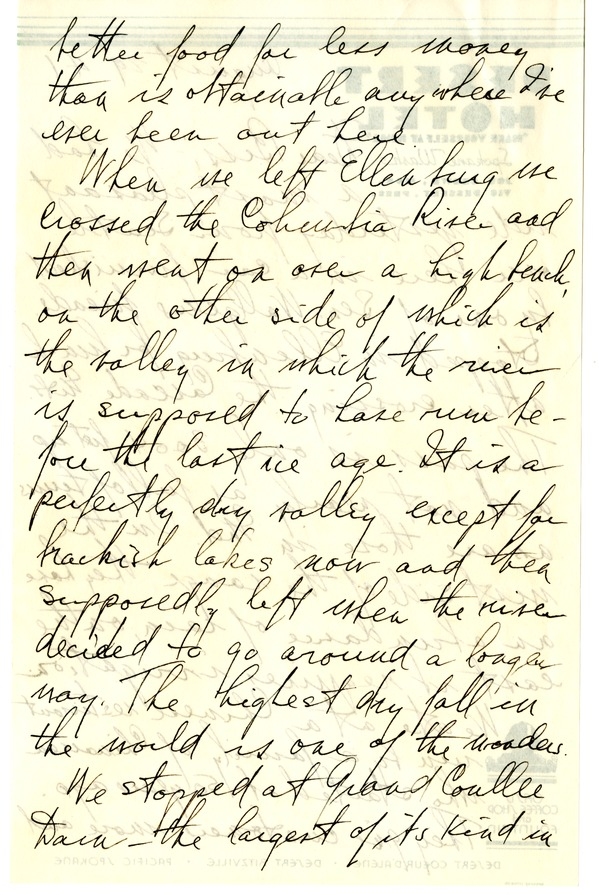 better food for less money
than is obtainable anywhere I've
ever been out here
When we left Ellenburg we
crossed the Columbia River and
then went on over a high bench,
on the other side of which is
the valley in which the river
is supposed to have run be-
fore the last ice age. It is a
perfectly dry valley except for
brackish lakes now and then
supposedly left when the river
decided to go around a longer
way. The highest dry fall in
the world is one of the wonders.
We stopped at Grand Coullee
Dam – the largest of its kind in